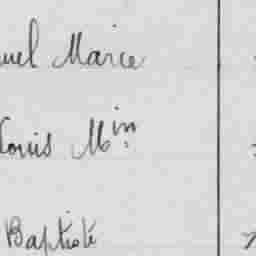 uel Marie
Louis Min
Baptiste